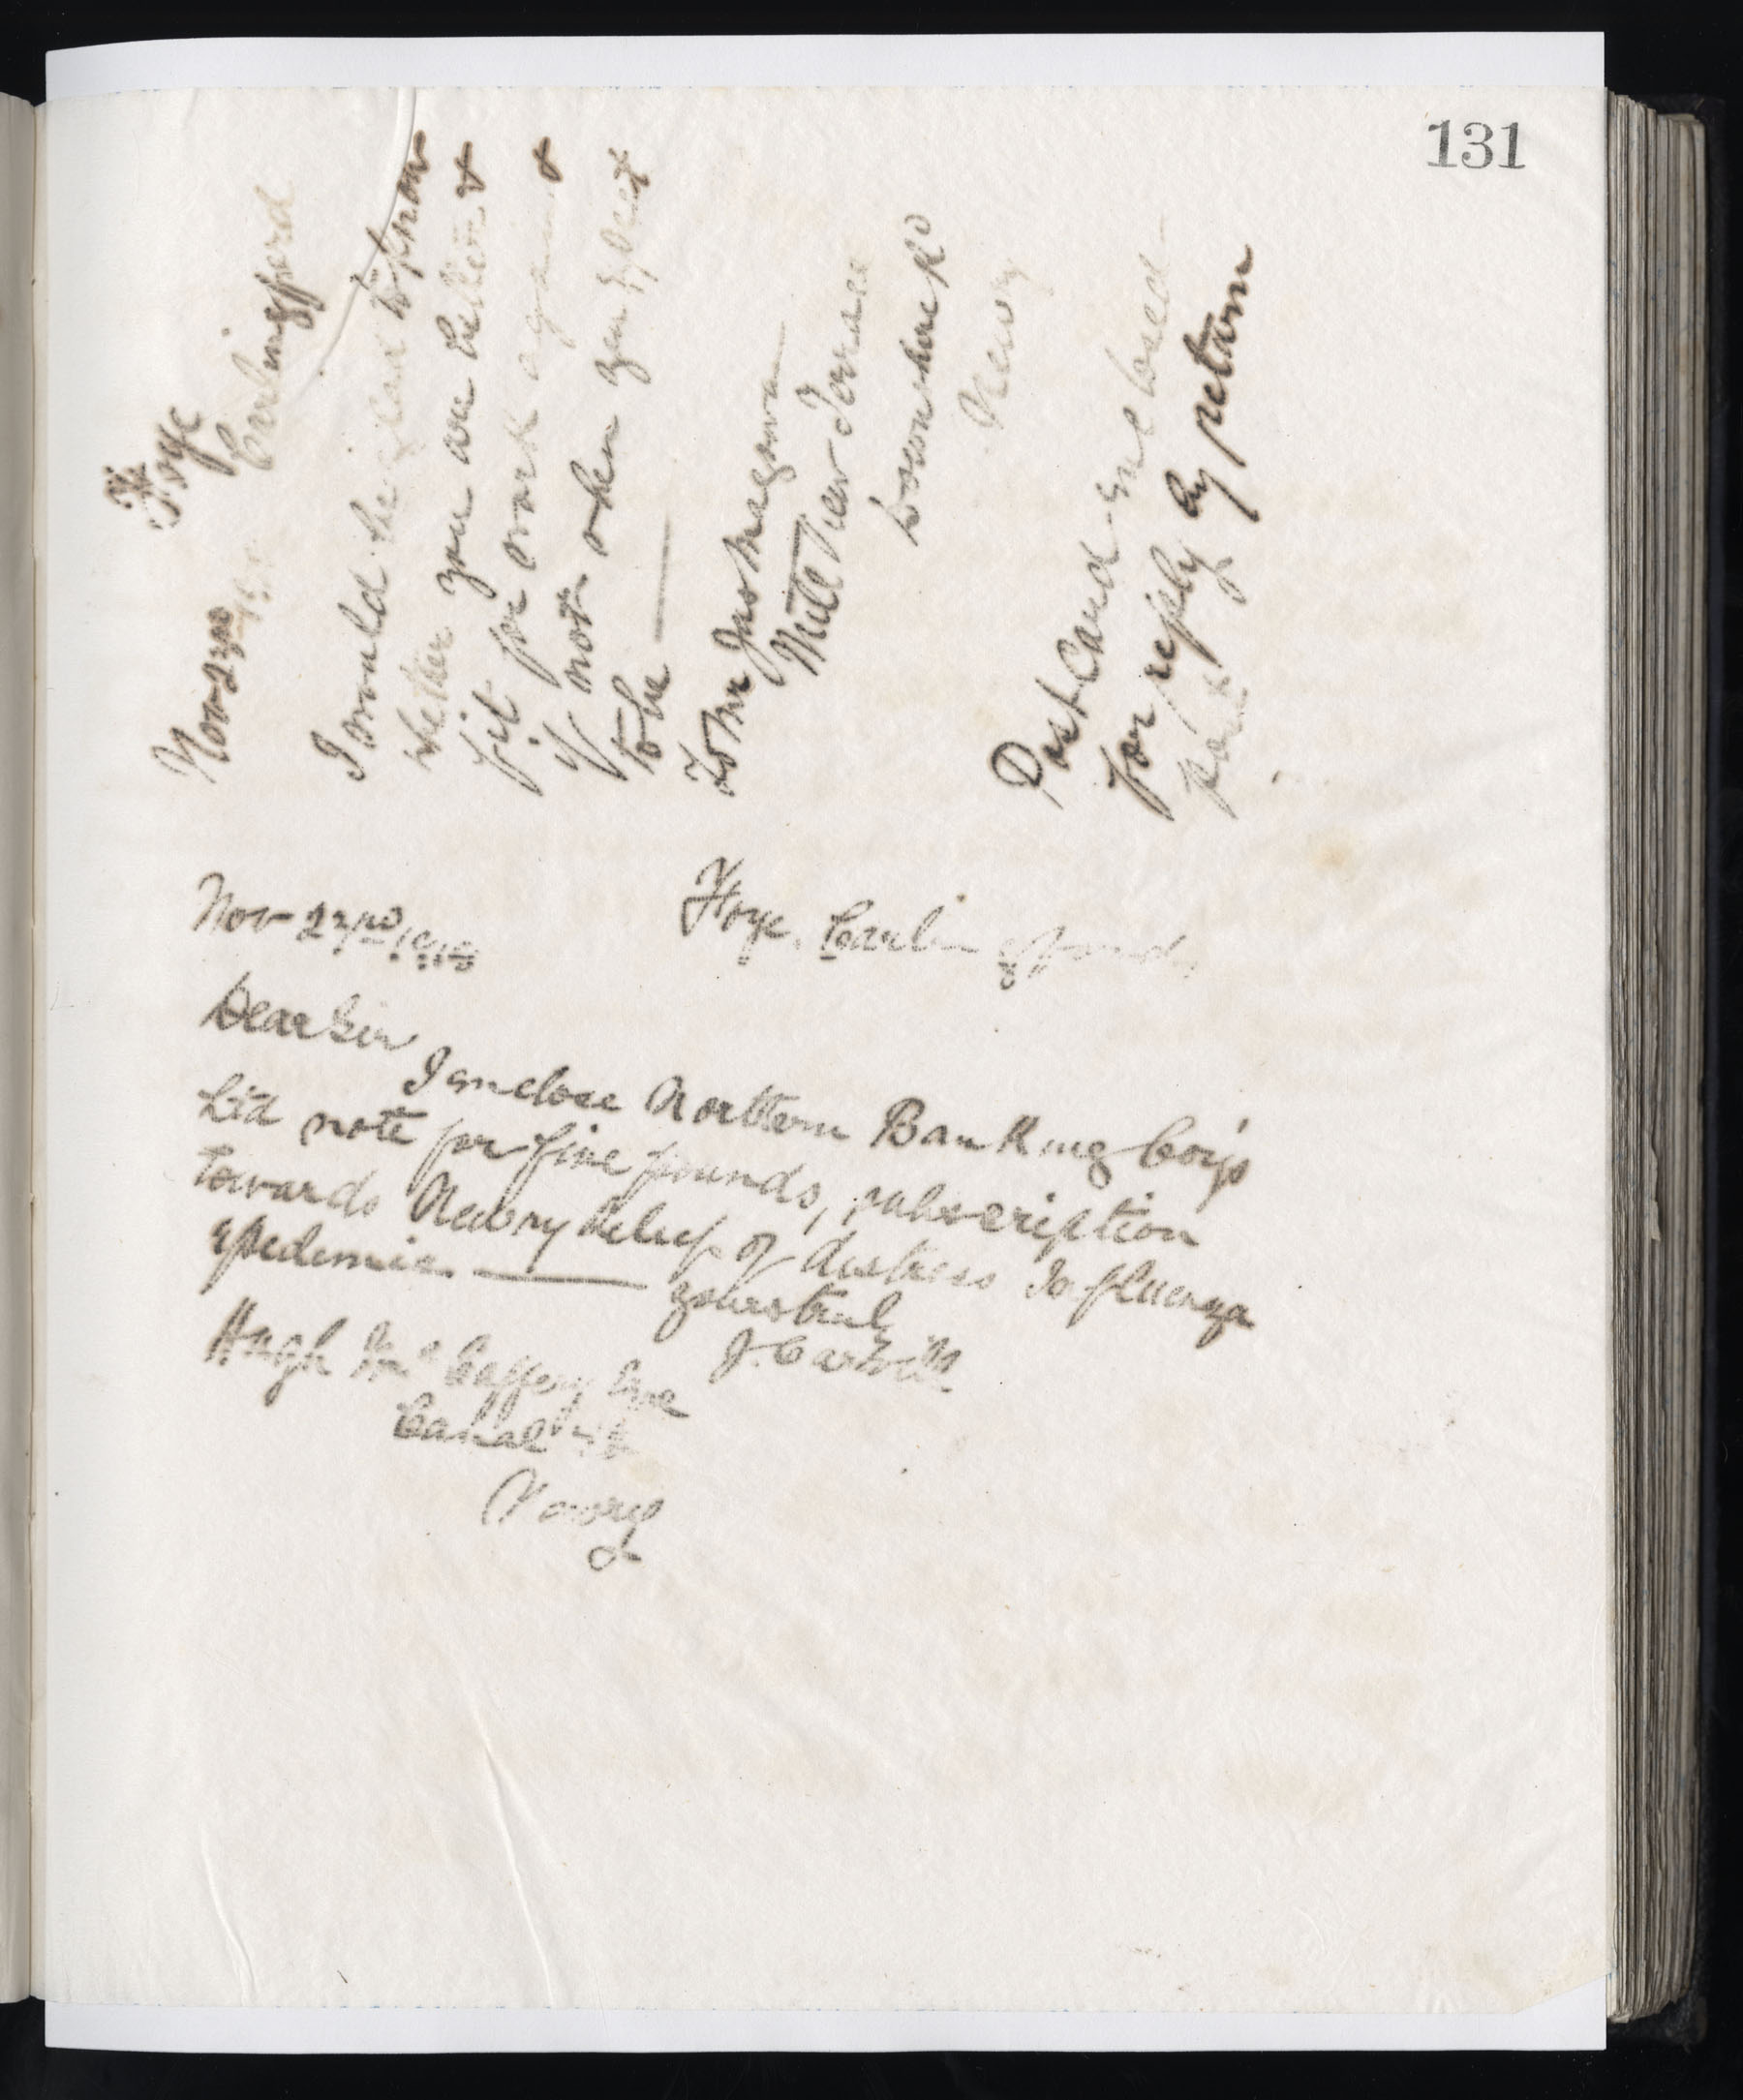 131
Foye
Carlingford
Nov 23rd
I would be glad to know
whether you are better &
fit for work again &
if not when you expect
to be
To Mr Jno Magowan
Mill View Terrace
Newry
Post Card enclosed
for reply by return
post
Nov 23rd 1918
Foye, Carlingford
Dear Sir
I enclose Northern Banking Coy's
Ltd note for five pounds, subscription
towards Newry Relief of distress Influenza
epedemic
yours truly
J. Carvill
Hugh McCaffery Esqe
Canal St
Newry